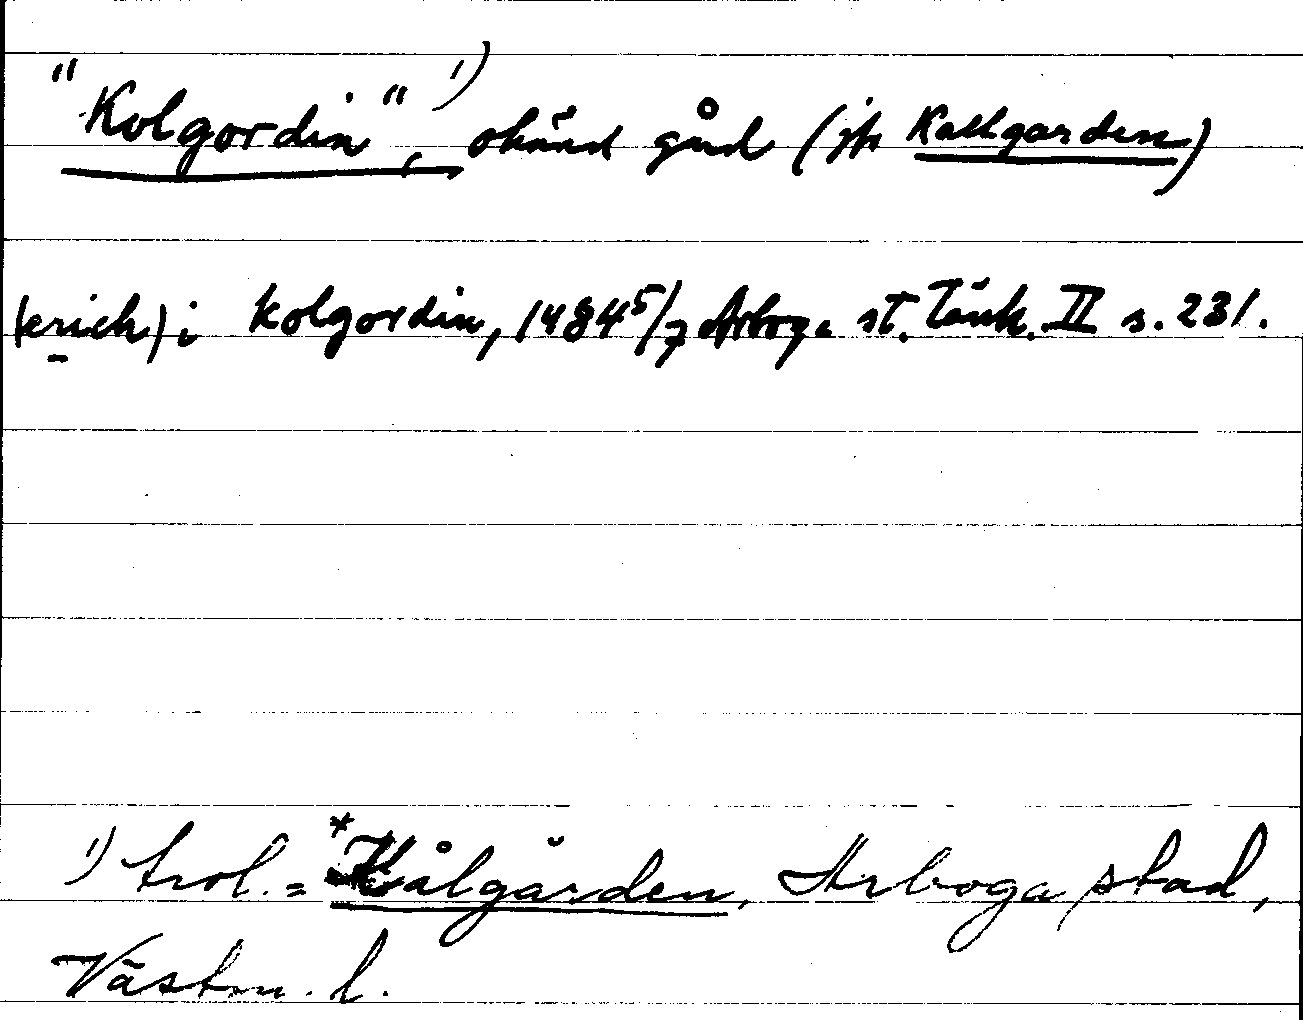 "Kolgordin" 1), okänd gård (jfr Kallgarden)
(erich) i kolgordin, 1484 5/7 Arboga st. Tänk. II s. 231.
1) trol. = *Kålgården, Arboga stad,
Västm. l.